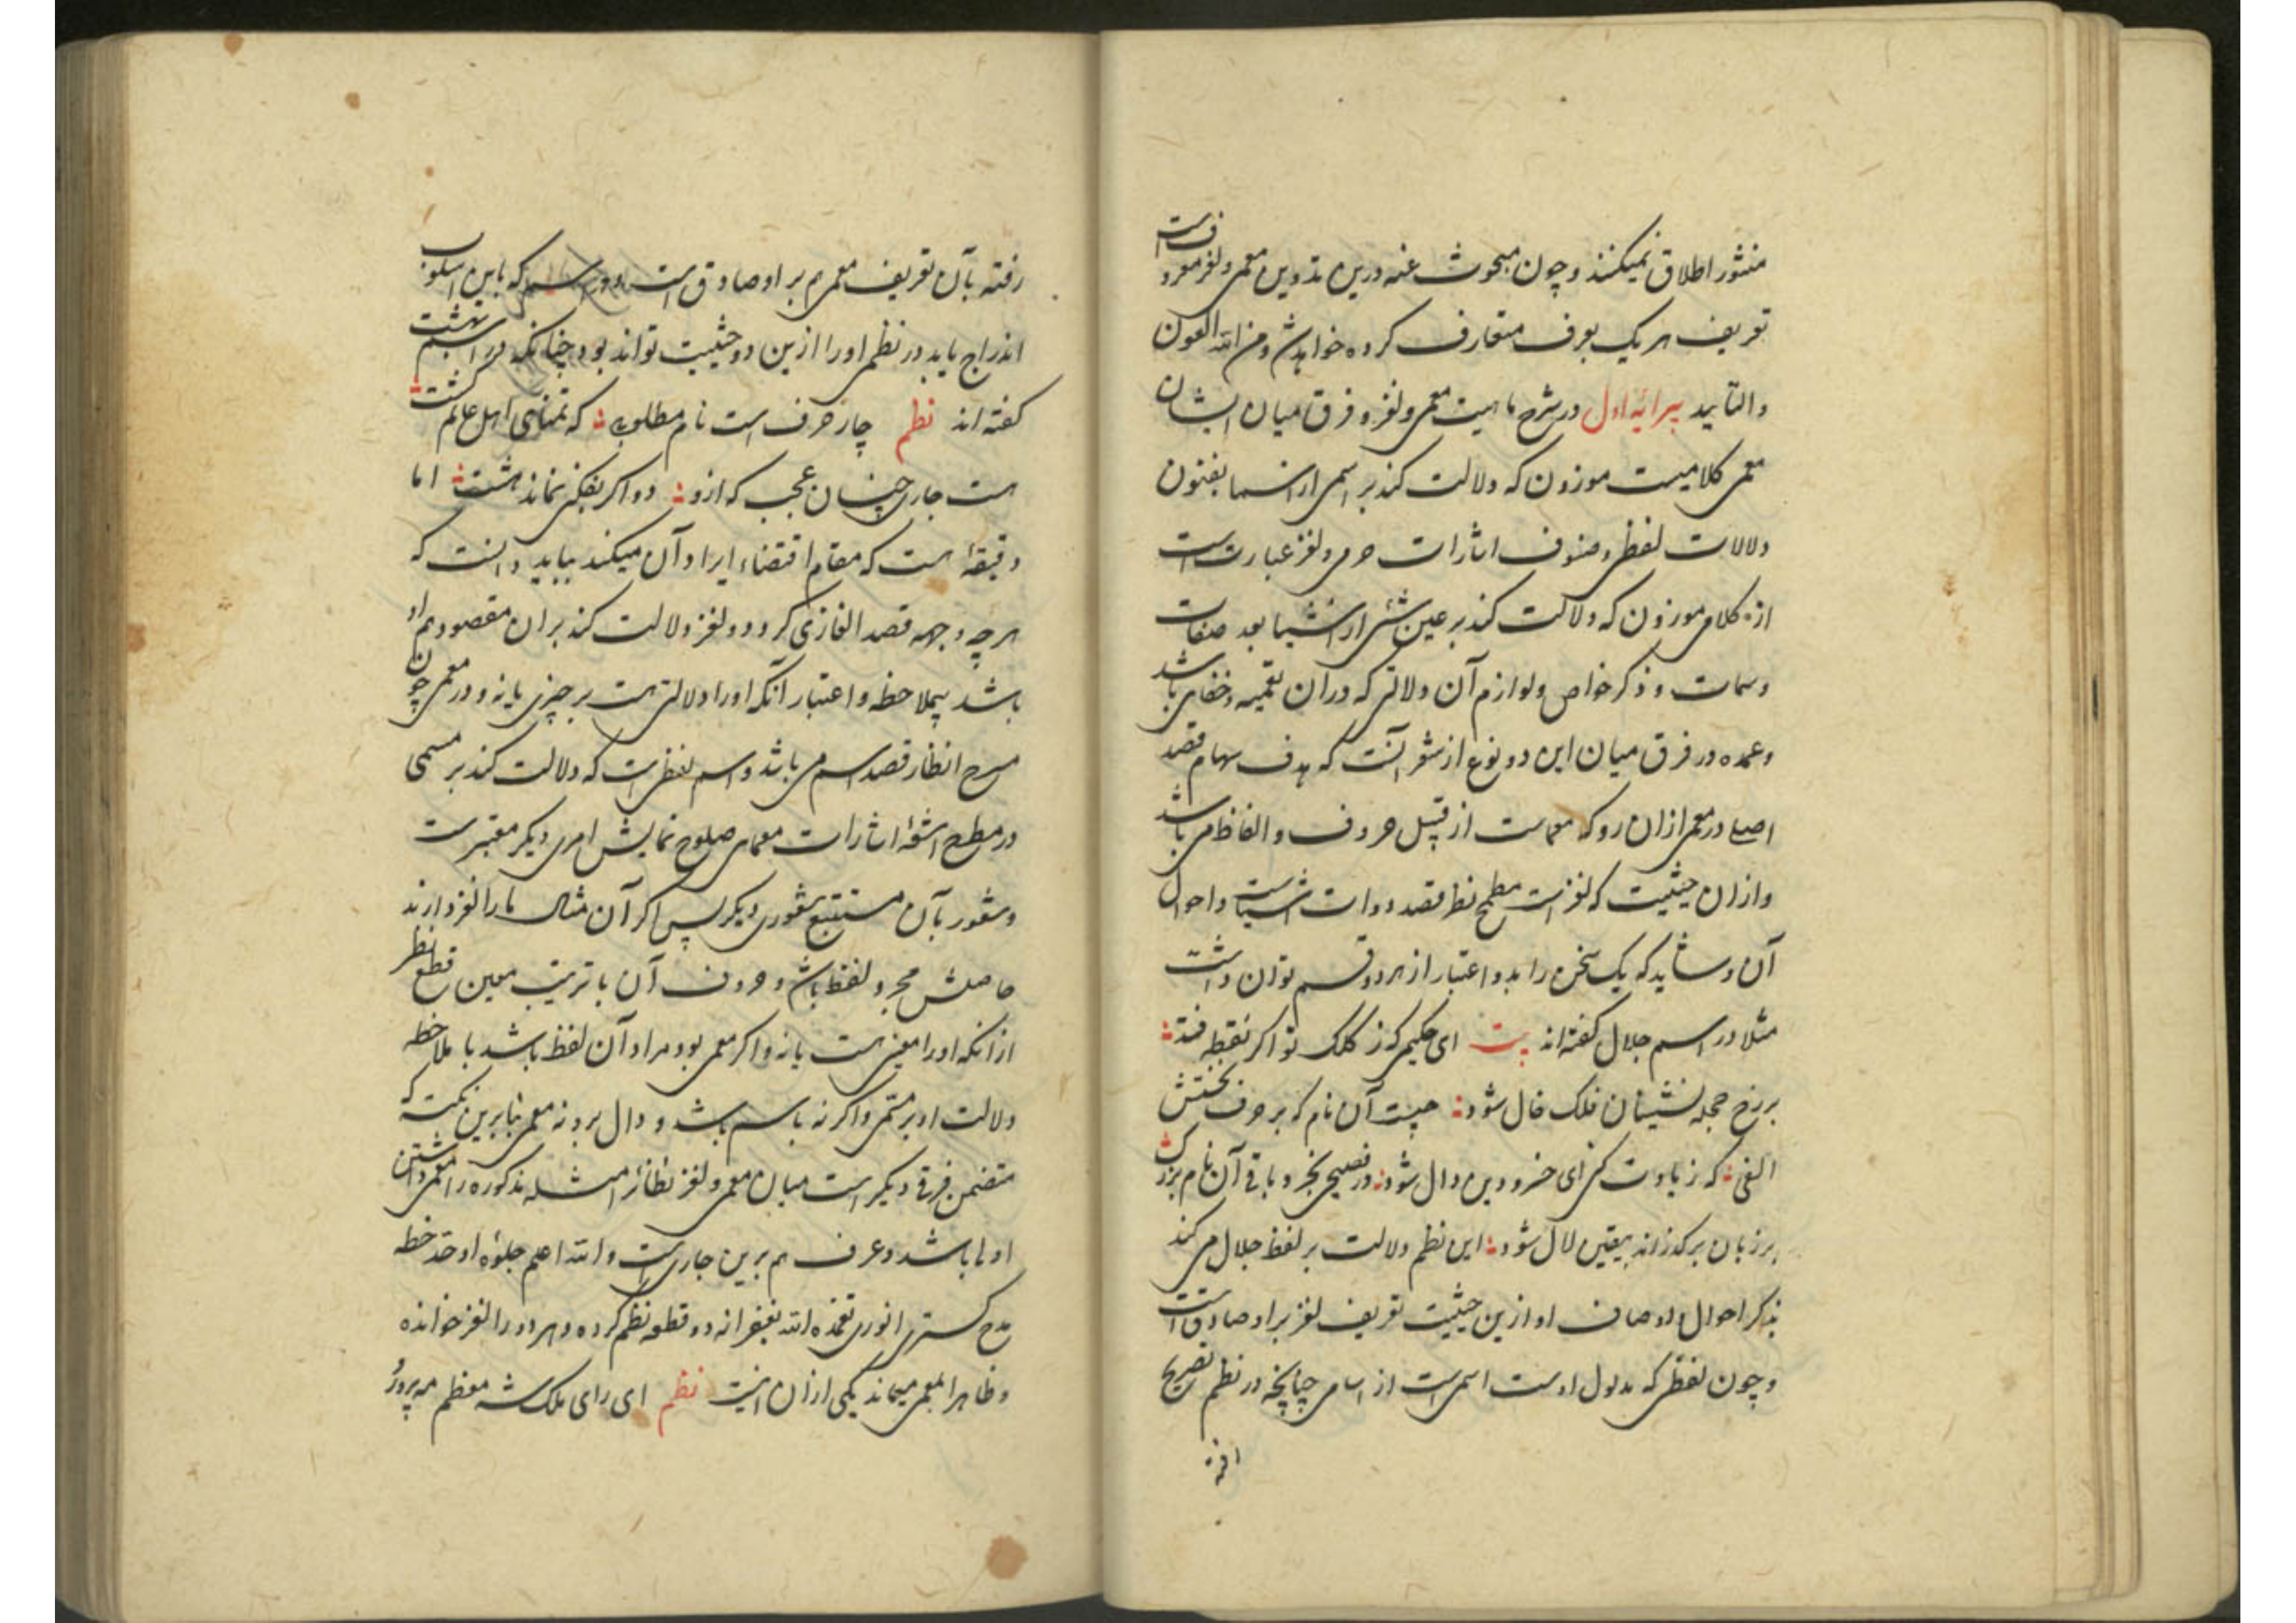 منثور اطلاق نمیکنند و چون مبحوث عنه درین تدوین معمی و لغز معروفست
تعریف هر یک بعرف متعارف کرده خواهد شد و من الله العون
والتأیید پیرایهٔ اول در شرح ماهیت معمی و لغز و فرق میان ایشان
معمی کلامیست موزون که دلالت کند بر اسمی از اسما بفنون
دلالات لفظی و صنوف اشارات حرفی و لغز عبارتست
از کلامی موزون که دلالت کند بر عین شئ از اشیا بعد صفات
و سمات و ذکر خواص و لوازم آن دلالتی که در آن تعمیه و خفایی باشد
و عمده در فرق میان این دو نوع از شعر آنست که هدف سهام قصد
اصلی در معمی ازان رو که معماست از قبیل حروف و الفاظ می باشد
و ازان حیثیت که لغز است مطمح نظر قصد ذوات اشیاست و احوال
آن و شاید که یک سخن را بدو اعتبار از هر دو قسم توان داشت
مثلا در اسم جلال گفته اند بیت ای حکیمی کز کلک تو اگر نقطه فتد
بر رخ حجله نشینان فلک خال شود چیست آن نام که بر حرف نخستش
الفی که زیادت کنی ای خسرو دین دال شود ور فصیحی بخرد باقی آن نام بزرگ
بر زبان برگذراند بیقین لال شود این نظم دلالت بر لفظ جلال می کند
بذکر احوال و اوصاف او ازین حیثیت تعریف لغز بر او صادقست
و چون لفظی که مدلول اوست اسمی است از اسامی چنانچه در نظم تصریح
رفته بآن تعریف معمی هم بر او صادق است و در اسم که باین اسلوب
اندراج یابد در نظم او را ازین دو حیثیت تواند بود چنانکه در اسم بهشت
گفته اند نظم چار حرف است نام مطلوبم که تمنای اهل عالم گشت
هست جاری چنان عجب که ازو دو اگر بفکنی نماند هشت اما
دقیقهٔ هست که مقام اقتضاء ایراد آن میکند بباید دانست که
هر چه وجهه قصد الغازی گردد و لغز دلالت کند بر ان مقصود هم او
باشد بیملاحظه و اعتبار آنکه او را دلالتی هست بر چیزی یا نه و در معمی چون
مسرح انظار قصد اسم می باشد و اسم لفظی است که دلالت کند بر مسمی
در مطرح اشعهٔ اشارات معمای صلوح نمایش امری دیگر معتبرست
و شعور بآن مستتبع شعوری دیگر پس اگر آن مثال ما را لغز دارند
حاصلش مجرد لفظ باشد و حروف آن با ترتیب معین قطع نظر
از آنکه او را معنی هست یا نه و اگر معمی بود مراد آن لفظ باشد با ملاحظه
دلالت او بر مسمی و اگر نه باسم باشد و دال برو نه معمی بنا برین نکته که
متضمن فرقی دیگر است میان معمی و لغز نظائر امثله مذکوره را معمی داشتن
اولی باشد و عرف هم برین جاریست و الله اعلم جلوهٔ اوحد خطه
مدح گستری انوری تغمده الله بغفرانه دو قطعه نظم کرده و هر دو را لغز خوانده
و ظاهرا بمعمی میماند یکی ازان اینست نظم ای رای ملک شه معظم مه پرور